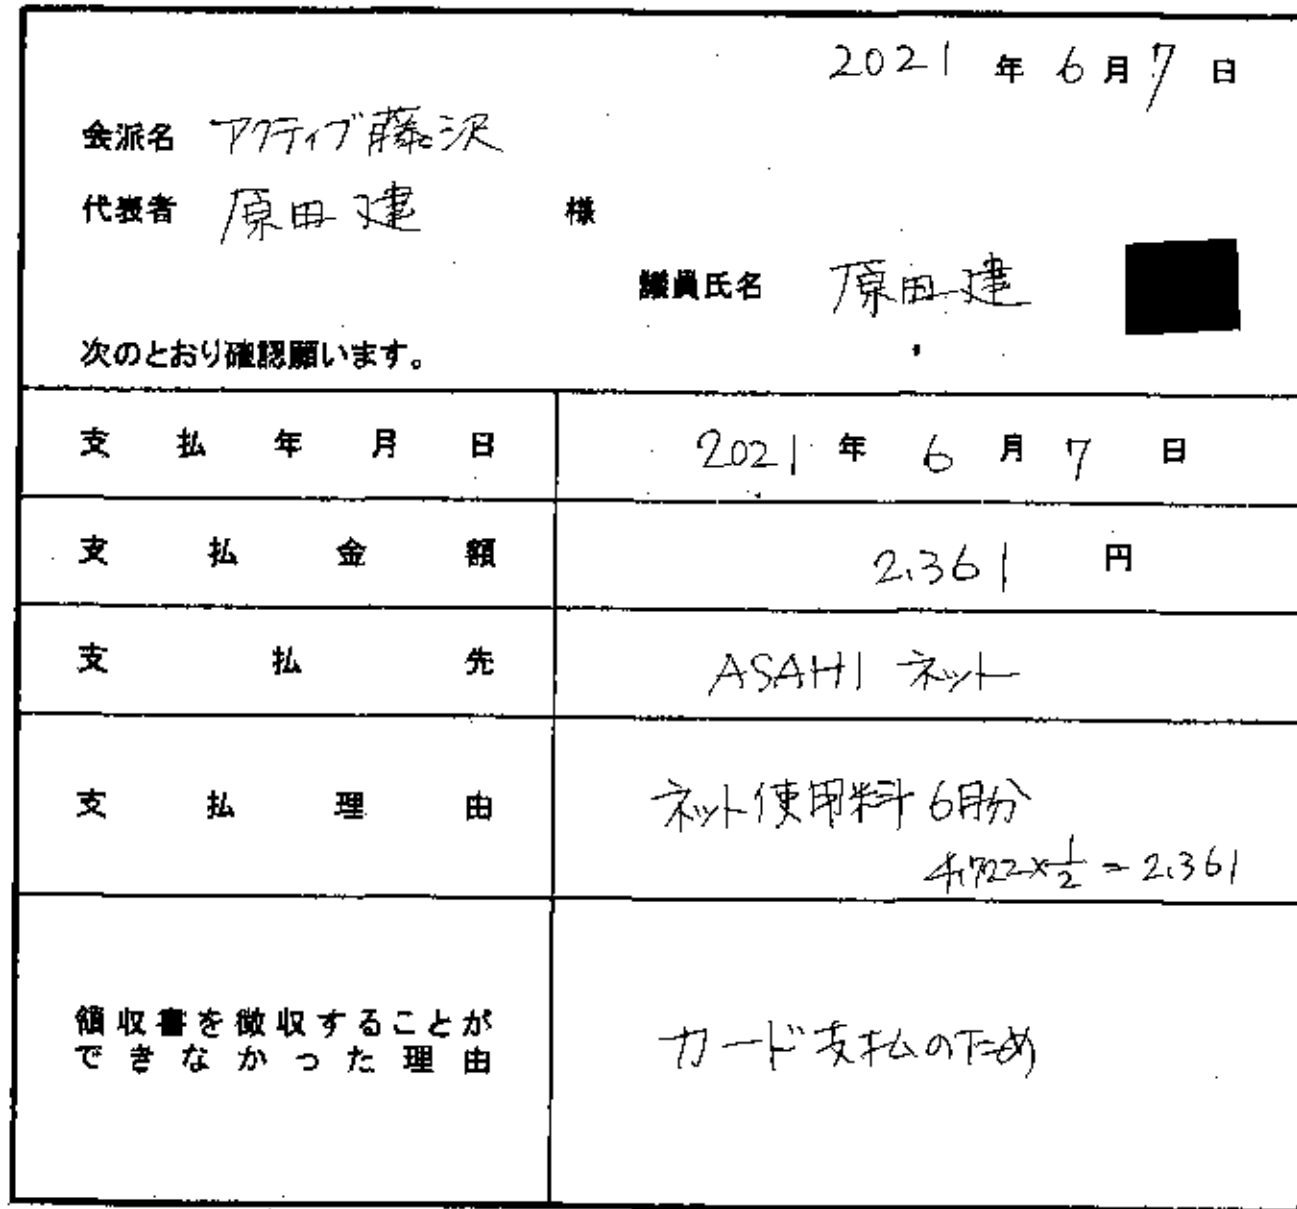 2021 年 6 月 7 日
会派名 アクティブ藤沢
代表者 原田建 様
議員氏名 原田建
次のとおり確認願います。
支払年月日 2021 年 6 月 7 日
支払金額 2,361 円
支払先 ASAHI ネット
支払理由 ネット使用料 6月分
4,722×1/2=2,361
領収書を徴収することが
できなかった理由
カード支払のため